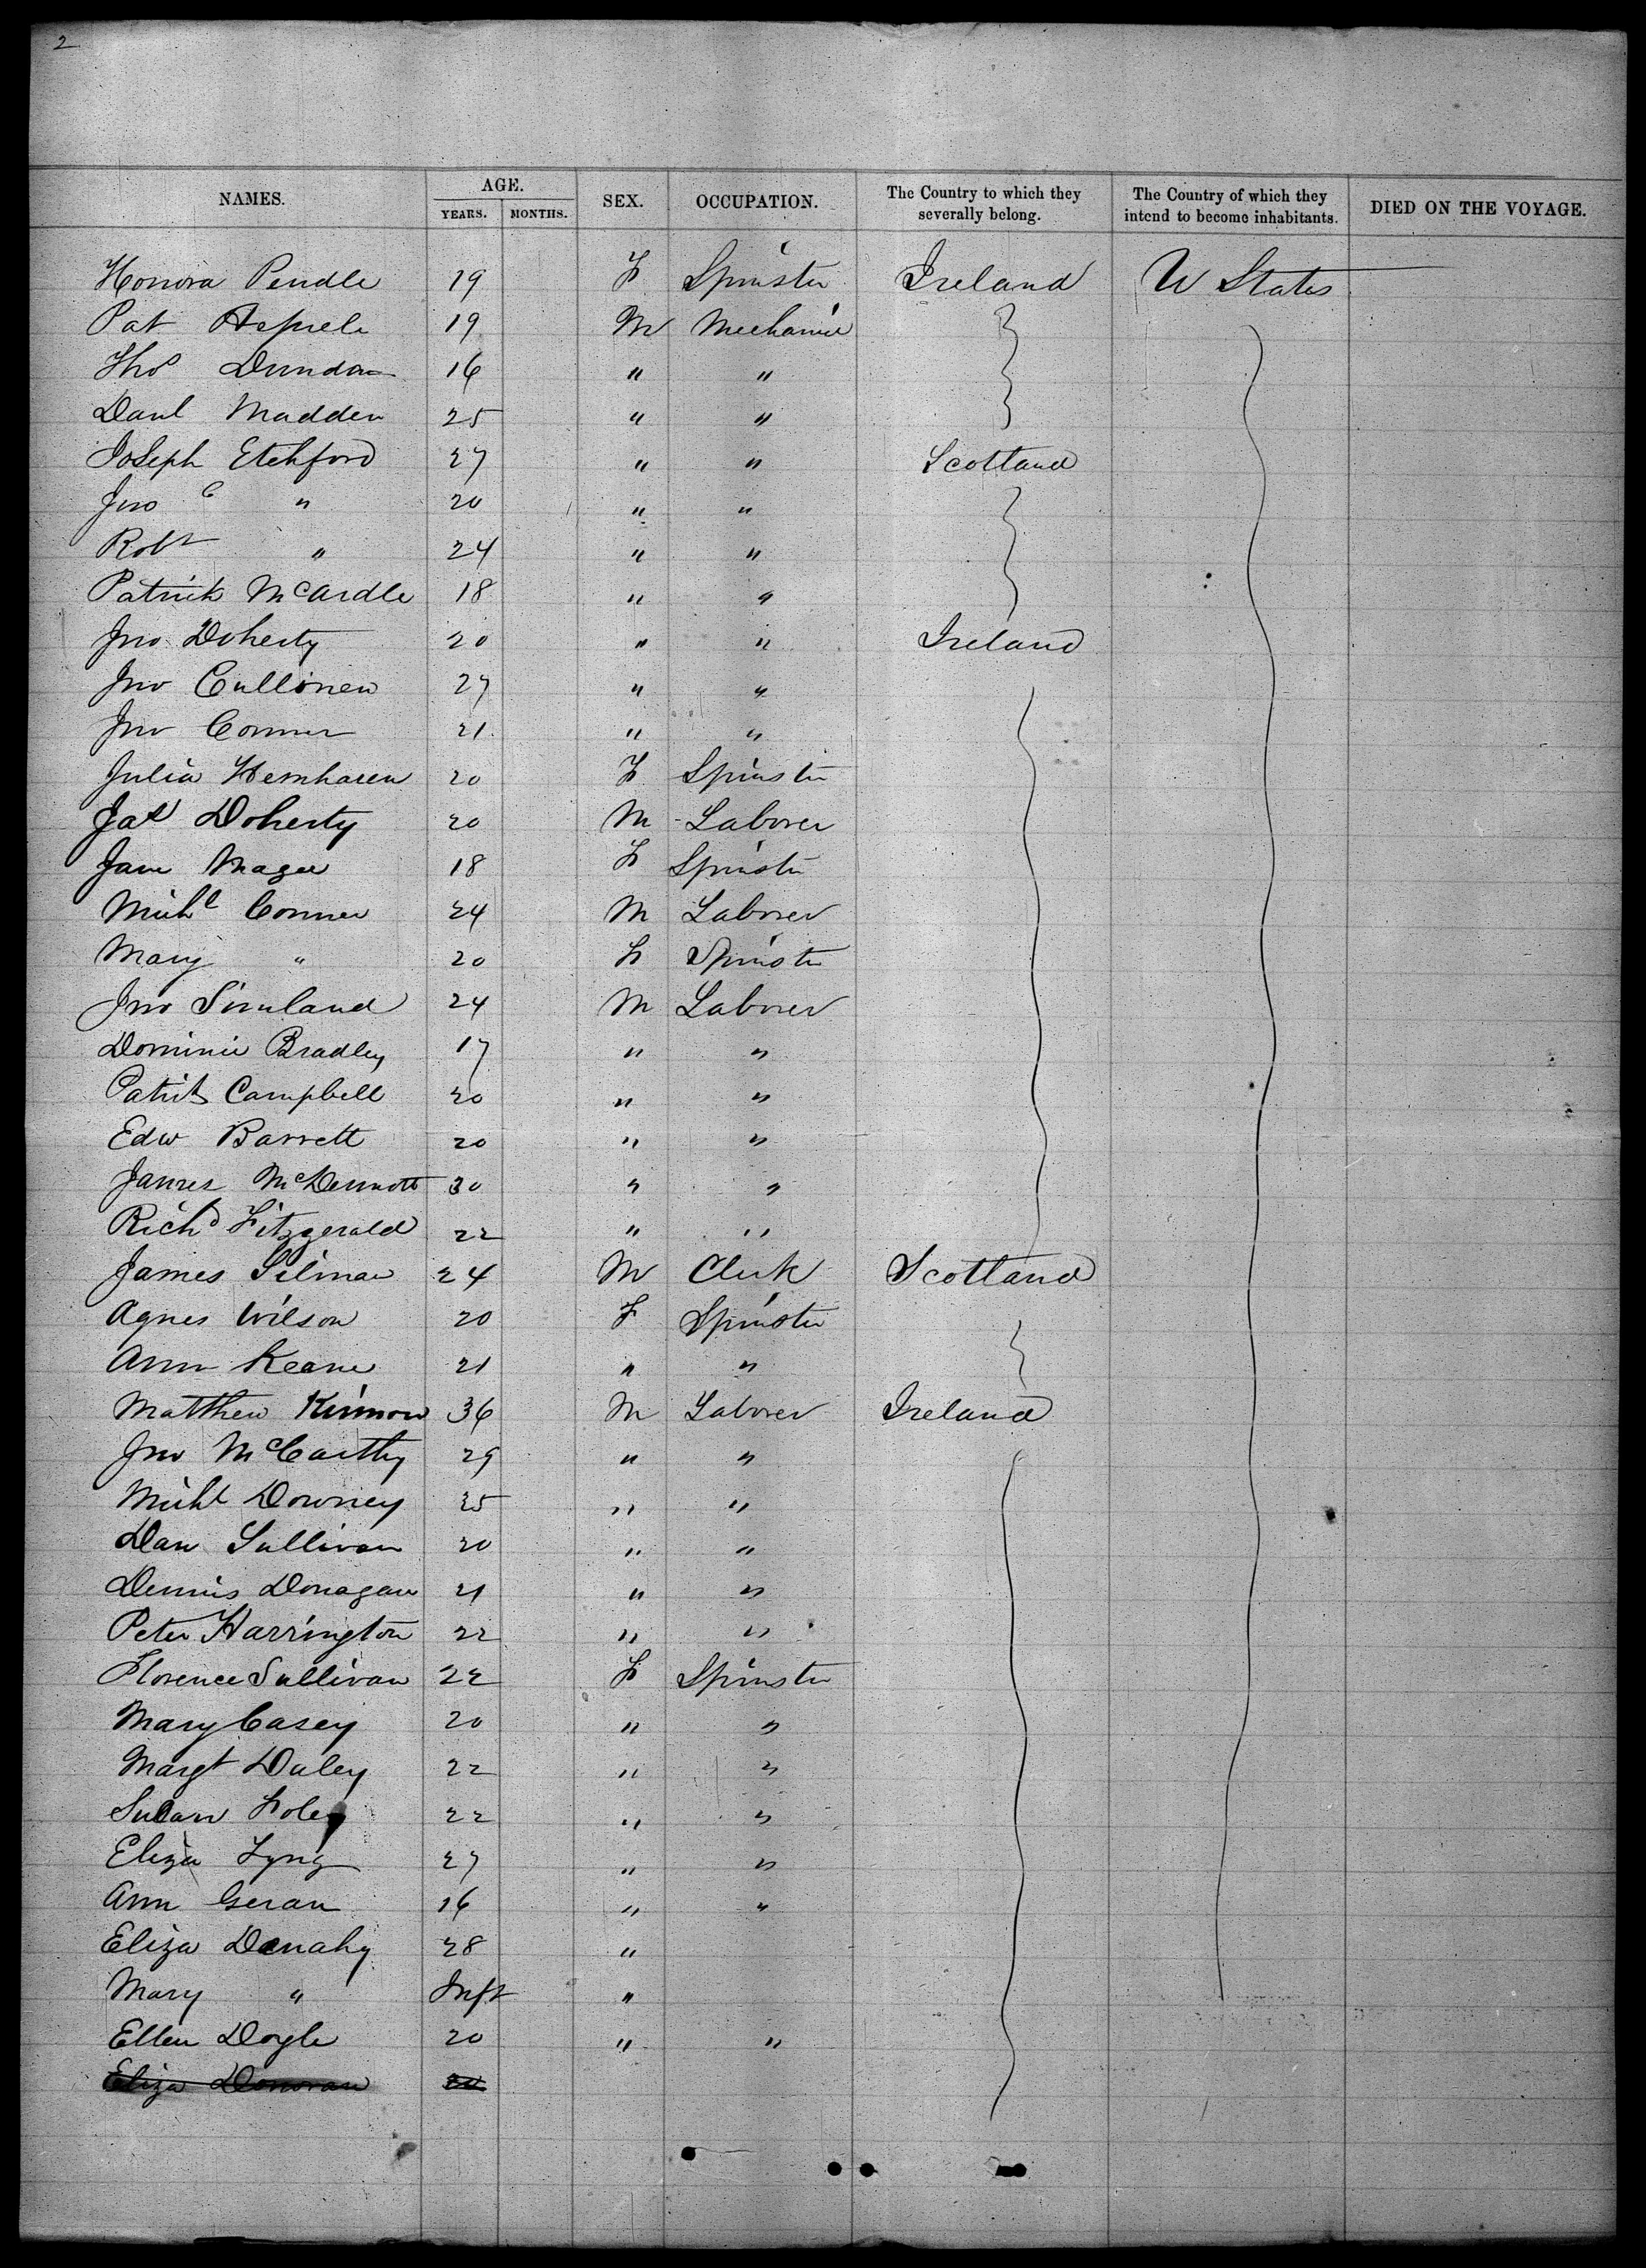 2
NAMES. AGE. YEARS. MONTHS. SEX. OCCUPATION. The Country to which they severally belong. The Country of which they intend to become inhabitants. DIED ON THE VOYAGE.
Honora Pendle 19 F Spinster Ireland U States
Pat 19 M Mechanic
Thos 16 " "
Danl Madden 25 " "
Joseph Etchford 27 " " Scotland
Jno C " 20 " "
Robt " 24 " "
Patrick McArdle 18 " "
Jno Doherty 20 " " Ireland
Jno Cullinen 27 " "
Jno Conner 21 " "
Julia 20 F Spinster
Jas Doherty 20 M Laborer
Jane Magee 18 F Spinster
Michl Conner 24 M Laborer
Mary " 20 F Spinster
Jno 24 M Laborer
Dominic Bradley 17 " "
Patrik Campbell 20 " "
Edw Barrett 20 " "
James McDermott 30 " "
Richd Fitzgerald 22 " "
James 24 M Clerk Scotland
Agnes Wilson 20 F Spinster
Ann Keane 21 " "
Matthew 36 M Laborer Ireland
Jno McCarthy 29 " "
Michl Downey 25 " "
Dan Sullivan 20 " "
Dennis Donagan 21 " "
Peter Harrington 22 " "
Florence Sullivan 22 F Spinster
Mary Casey 20 " "
Margt Daley 22 " "
Susan Foley 22 " "
Eliza Lyng 27 " "
Ann Geran 16 " "
Eliza Denahy 28 "
Mary " Inft "
Ellen Doyle 20 " "
Eliza Donovan 20